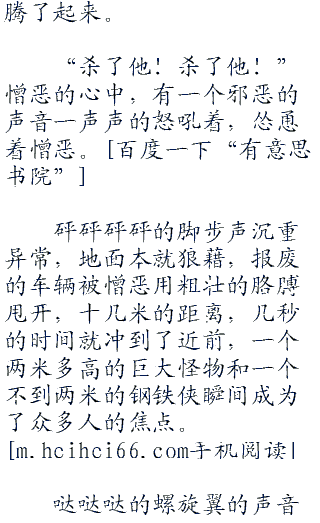 腾了起来。
“杀了他！杀了他！”
憎恶的心中，有一个邪恶的
声音一声声的怒吼着，怂恿
着憎恶。[百度一下“有意思
书院”]
砰砰砰砰的脚步声沉重
异常，地面本就狼藉，报废
的车辆被憎恶用粗壮的胳膊
甩开，十几米的距离，几秒
的时间就冲到了近前，一个
两米多高的巨大怪物和一个
不到两米的钢铁侠瞬间成为
了众多人的焦点。
[m.hcihci66.com手机阅读|
哒哒哒的螺旋翼的声音